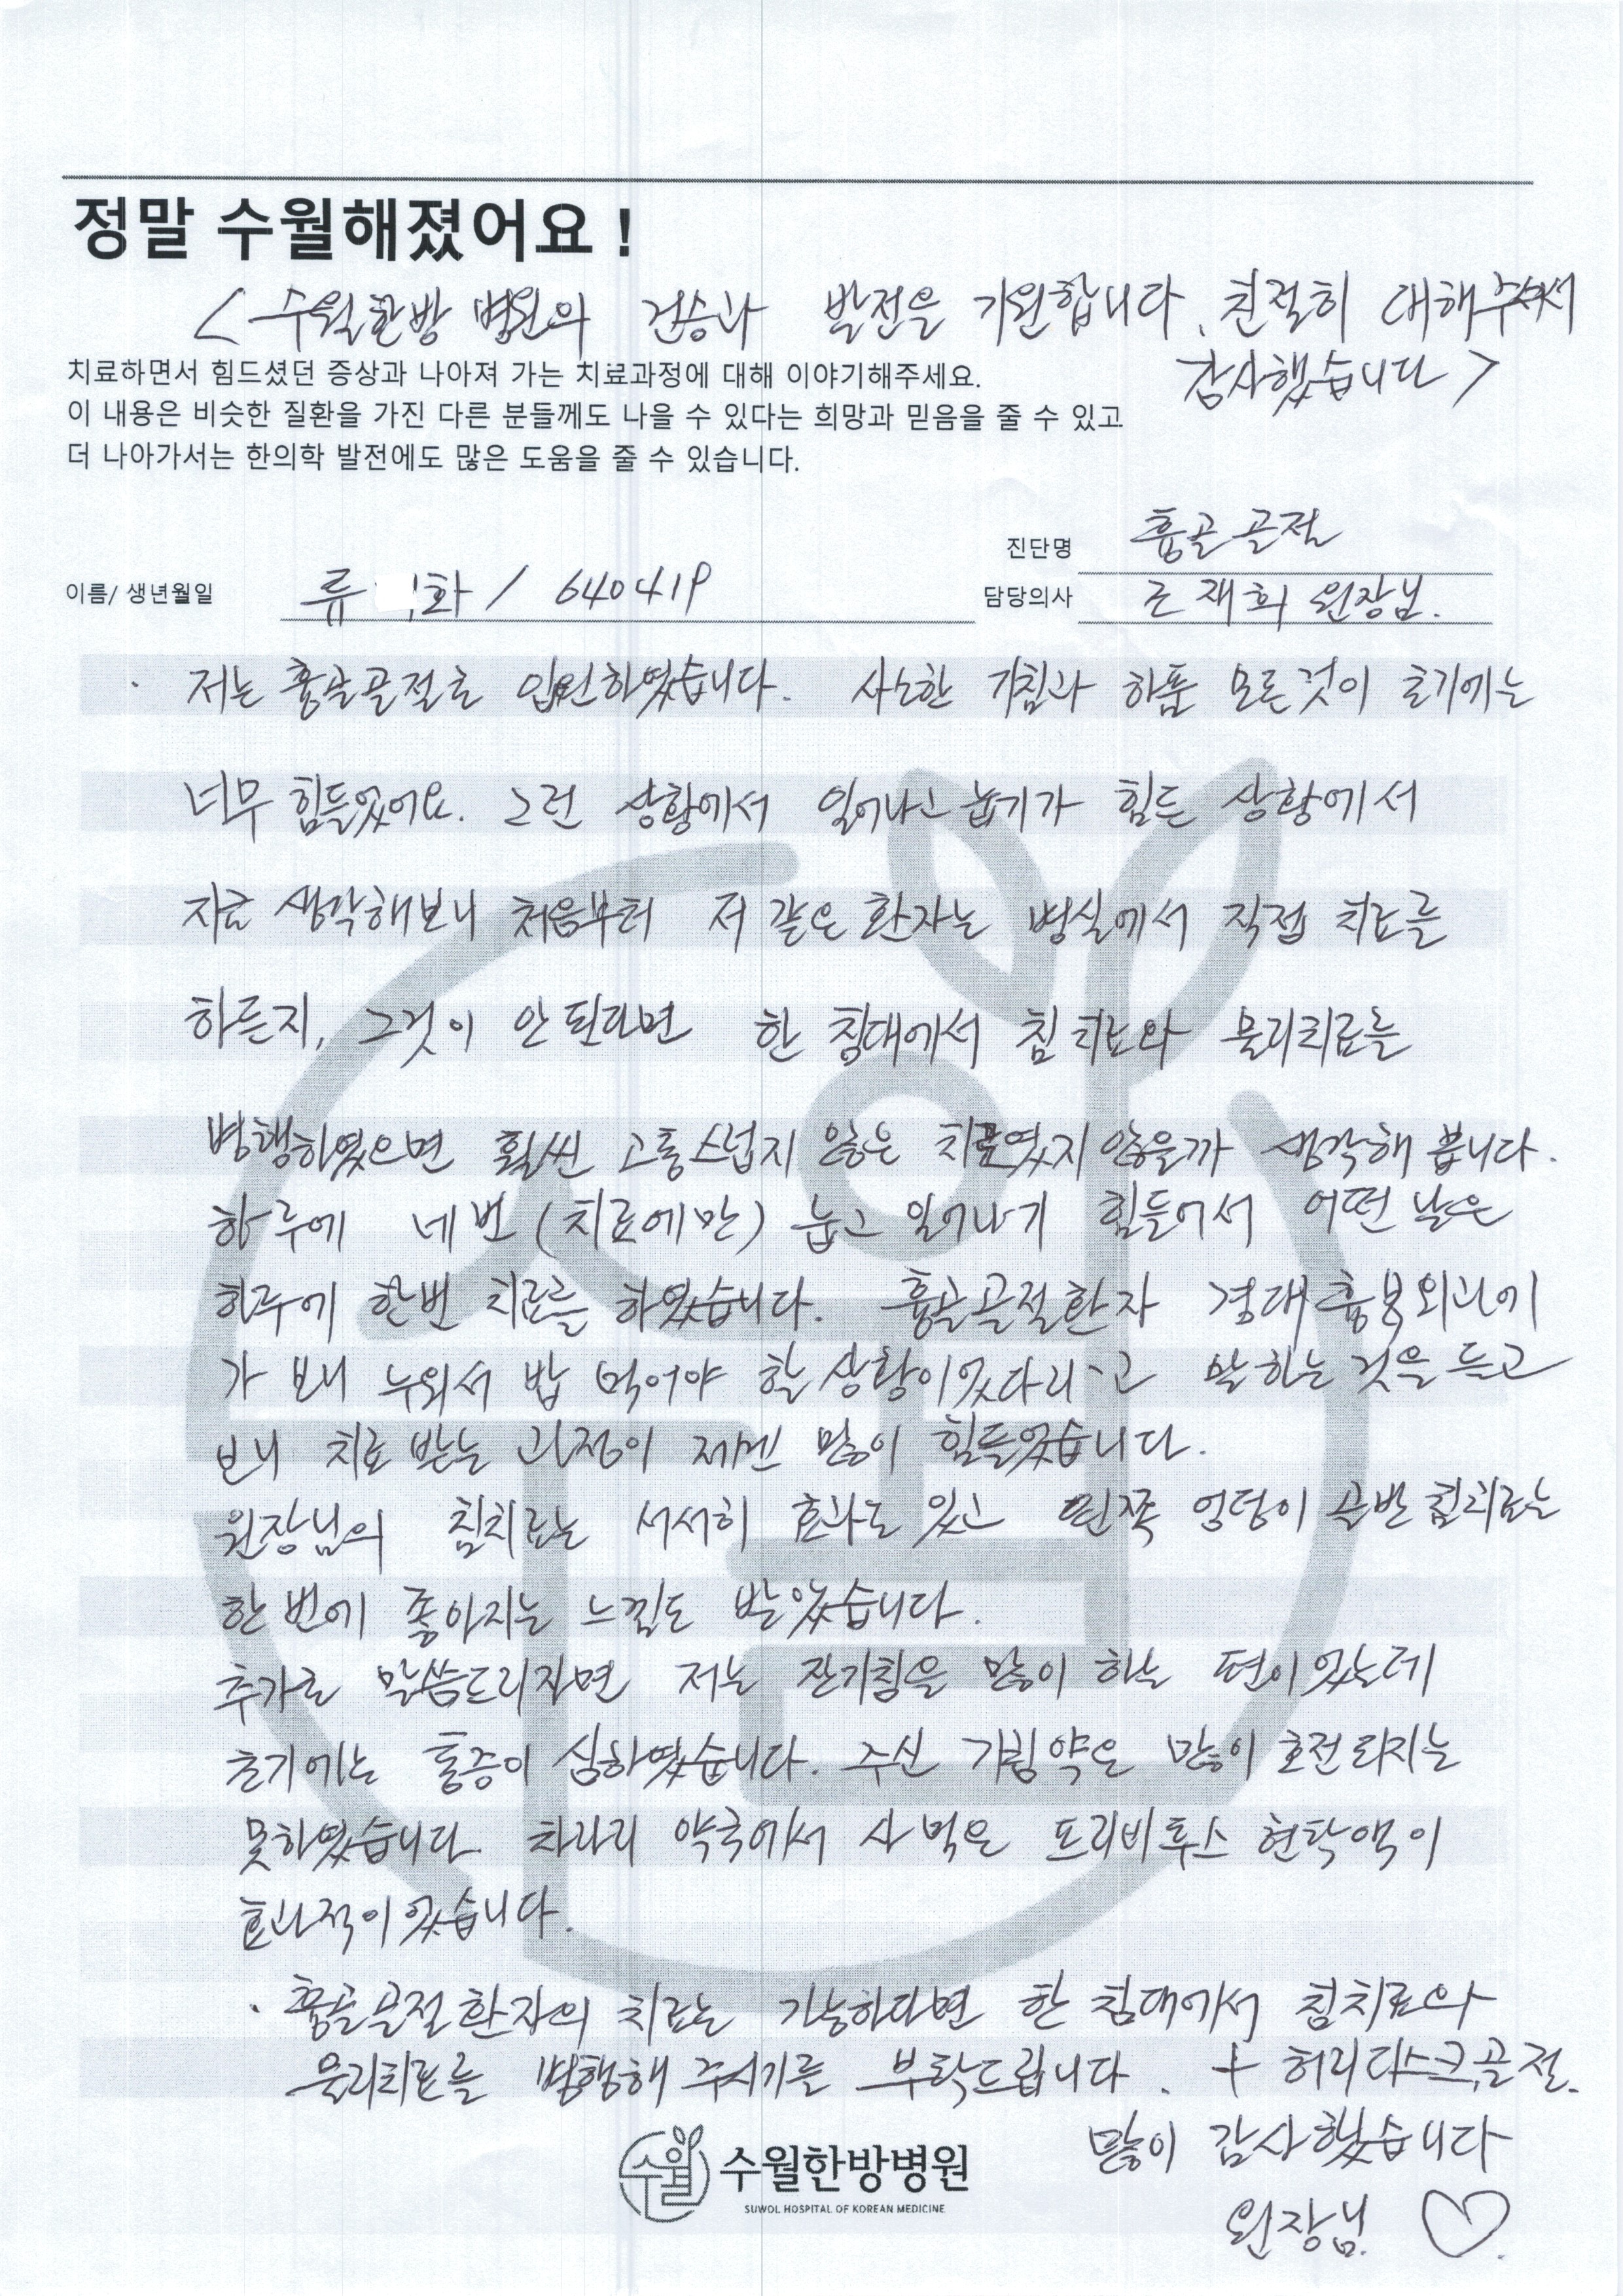 정말 수월해졌어요 !
< 수월한방 병원의 건승과 발전을 기원합니다. 친절히 대해주셔서
감사했습니다 >
치료하면서 힘드셨던 증상과 나아져 가는 치료과정에 대해 이야기해주세요.
이 내용은 비슷한 질환을 가진 다른 분들께도 나을 수 있다는 희망과 믿음을 줄 수 있고
더 나아가서는 한의학 발전에도 많은 도움을 줄 수 있습니다.
진단명 흉골 골절
이름/ 생년월일 류 화 / 640419
담당의사 재희 원장님.
· 저는 흉골골절로 입원하였습니다. 사소한 기침과 하품 모든것이 초기에는
너무 힘들었어요. 그런 상황에서 일어나고 눕기가 힘든 상황에서
지금 생각해보니 처음부터 저 같은 환자는 병실에서 직접 치료를
하든지, 그것이 안 된다면 한 침대에서 침 치료와 물리치료를
병행하였으면 훨씬 고통스럽지 않은 치료였지 않을까 생각해 봅니다.
하루에 네번 (치료에만) 눕고 일어나기 힘들어서 어떤 날은
하루에 한번 치료를 하였습니다. 흉골골절환자 경대흉부외과에
가 보니 누워서 밥 먹어야 할 상황이었다라고 말하는 것을 듣고
보니 치료 받는 과정이 제겐 많이 힘들었습니다.
원장님의 침치료는 서서히 효과도 있고 왼쪽 엉덩이 골반 침치료는
한 번에 좋아지는 느낌도 받았습니다.
추가로 말씀드리자면 저는 잔기침을 많이 하는 편이었는데
초기에는 통증이 심하였습니다. 주신 기침약은 많이 호전되지는
못하였습니다. 차라리 약국에서 사 먹은 프리비투스 현탁액이
효과적이었습니다.
· 흉골골절환자의 치료는 가능하다면 한 침대에서 침치료와
물리치료를 병행해 주시기를 부탁드립니다. + 허리디스크,골절.
많이 감사했습니다
원장님. ♡.
수월 수월한방병원
SUWOL HOSPITAL OF KOREAN MEDICINE